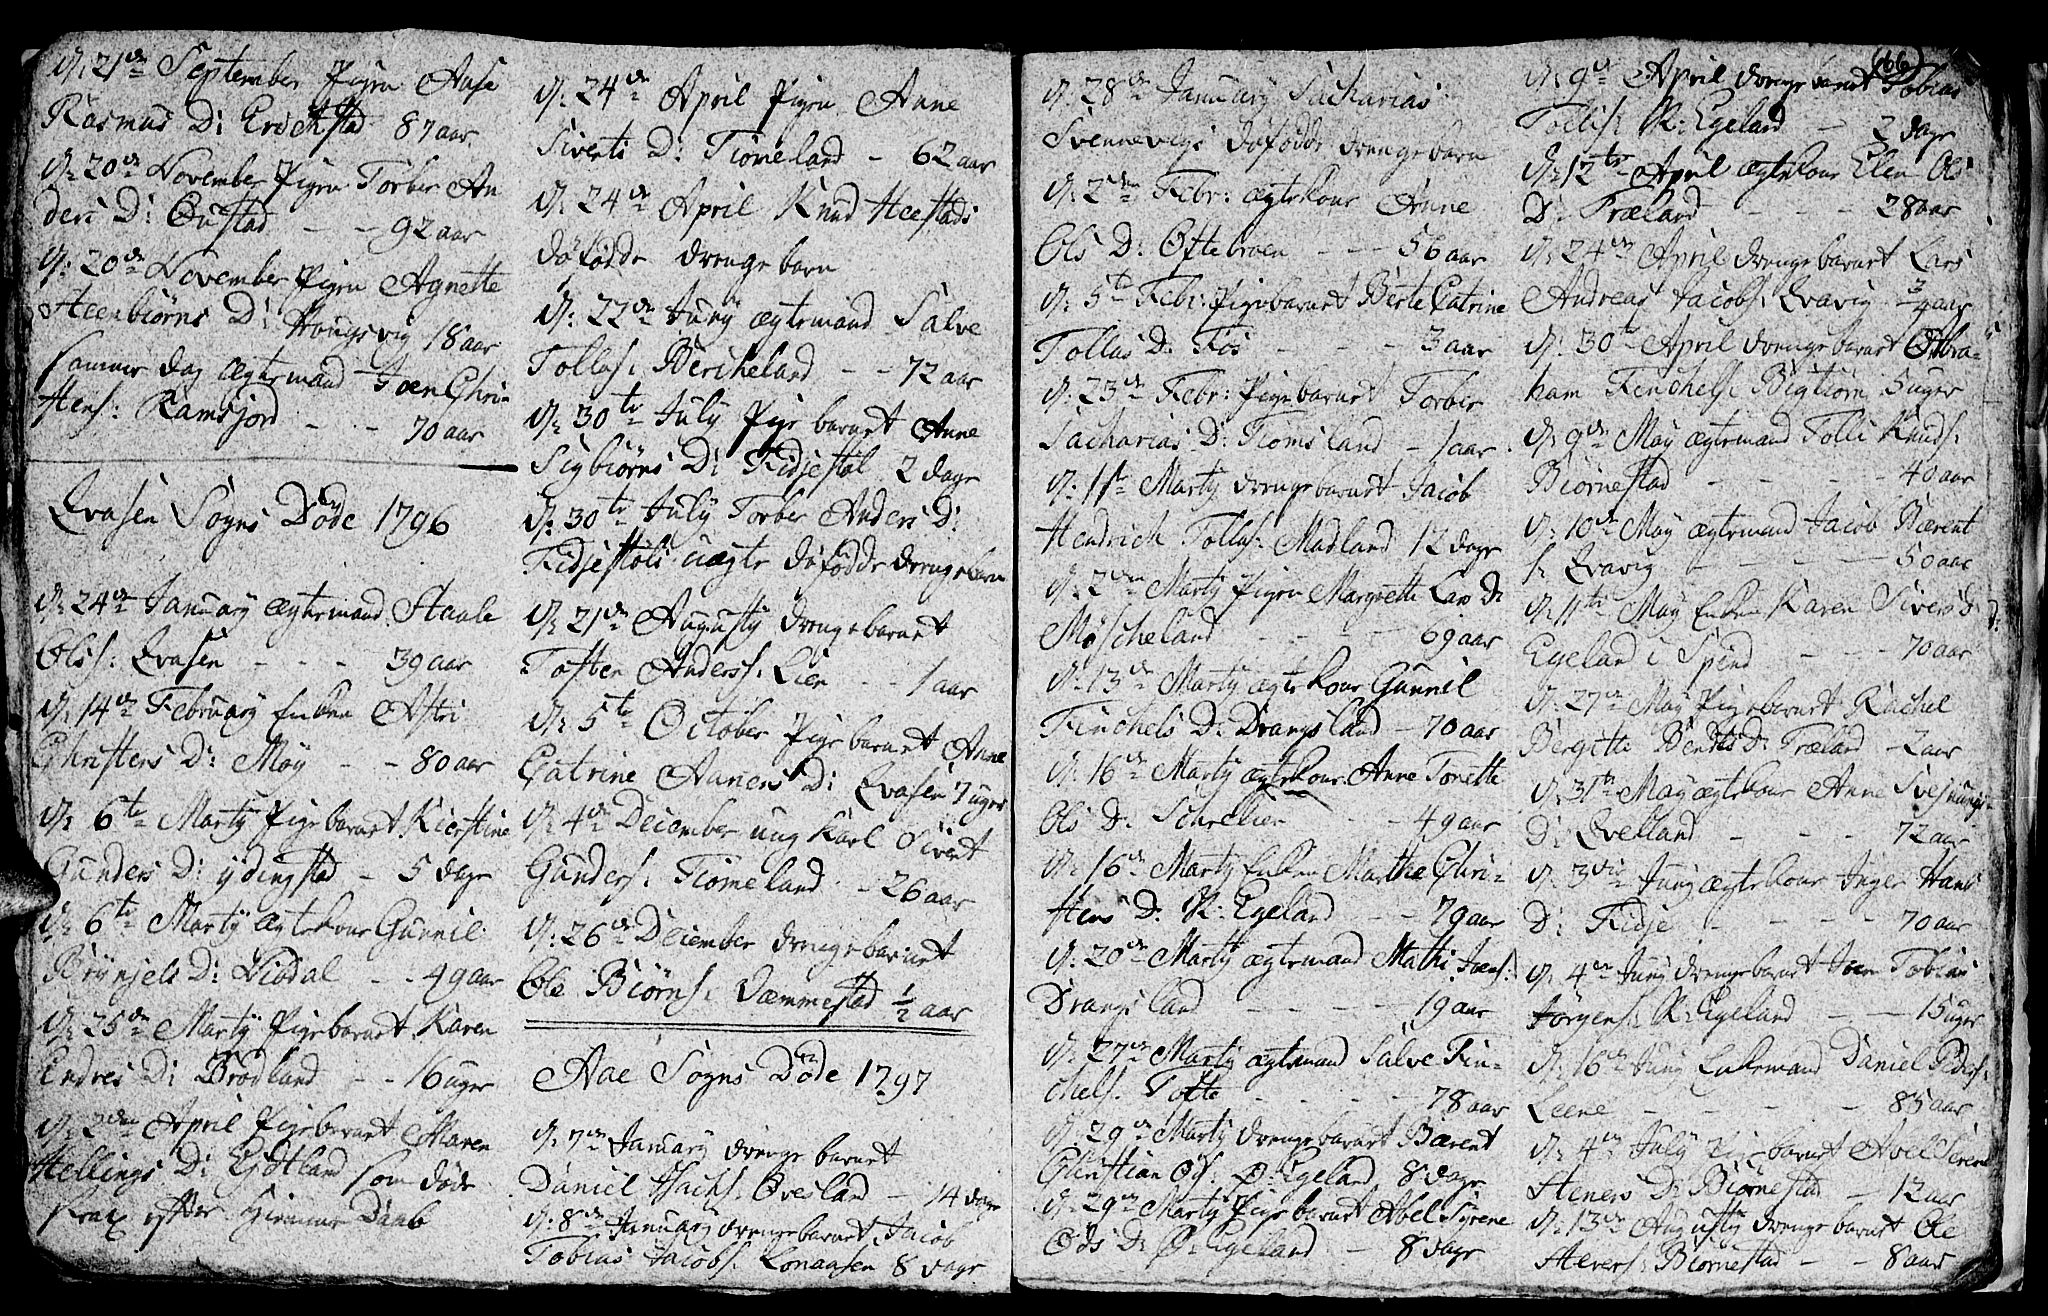 d: 21de September Pigen Aase
Rasmus D: Erichstad 87 aar
d: 20de November Pigen Torber An
ders D: Øustad - - 92 aar
d: 20de November Pigen Agnette
Steenbiørns D: 18 aar
samme dag ægtemand Joen Chri-
stens: Ramsjord - - 70 aar
Qvasen Sogns Døde 1796
d: 24de January ægtemand Staale
Ols: Qvasen - - - 39 aar
d: 14de February Enken Astri
Christens D: Møy - - 80 aar
d: 6te Marty Pigebarnet Kierstine
Gunders D: ydingstad - 5 dage
d: 6te Marty ægtekone Gunnil
Brynjels D: Nisdal - - 49 aar
d: 25de Marty Pigebarnet Karen
Endres D: Brødland - - 16 uger
d: 2den April Pigebarnet Maren
Hellings D: Eydtland som døde
strax efter hiemme Daab
d: 24de April Pigen Anne
Siverts D: Tiomeland - 62 aar
d: 24de April Knud Heestads
døfødde drengebarn
d: 22de Juny ægtemand Salve
Tollas: Bercheland - - 72 aar
d: 30te July Pige barnet Anne
Sigbiørns D: Fidjestøl 2 dage
d: 30te July Torber Anders D:
Fidjestøls uægte døfødde drengebarn
d: 21de Augusty drengebarnet
Tosten Anders: Lien - - 1 aar
d: 5te October Pigebarnet Anne
Catrine Aaners D: Qvasen 7 uger
d: 4de December ung Karl Sivert
Gunders: Tiomeland - 26 aar
d: 26de December drengebarnet
Ole Biørns: Væmmestad 1/2 aar
Aae Sogns Døde 1797
d: 7de January drenge barnet
Daniel Isachs: Øresland - 14 dage
d: 8de January drengebarnet Jacob
Tobias Jacobs: Lonaasen 8 dage
(66)
d: 28de January Sacharias
Svennevigs døfødde drengebarn
d: 2den Febr: ægtekone Anne
Ols D: Oftebroen - - 56 aar
d: 5te Febr: Pigebarnet Berte Catrine
Tollas D: Fos - - - 3 aar
d: 23de Febr: Pigebarnet Torber
Sacharias D: Tiomsland - 1 aar
d: 11te Marty drengebarnet Jacob
Hendrich Tollas: Madland 12 dage
d: 2den Marty Pigen Margrette Lars D:
Møscheland - - - - 69 aar
d: 13de Marty ægtekone Gunnil
Finchels D: Drangsland - 70 aar
d: 16de Marty ægtekone Anne Tonette
Ols D: Schrelien - - 49 aar
d: 16de Marty Enken Marthe Chri-
stens D: N: Egeland - - 79 aar
d: 20de Marty ægtemand Mathi Joens:
Drangsland - - - - 19 aar
d: 27de Marty ægtemand Salve Fin-
chels: Totte - - - 78 aar
d: 29de Marty drengebarnet Bærent
Christian Ods: Ø: Egeland 8 dage
d: 29de Marty Pigebarnet Abel Syrene
Ods D: Ø: Egeland - 8 dage
d: 9de April drengebarnet Tobias
Tollis: N: Egeland - 2 dage
d: 12te April ægtekone Elen Ols
D: Træland - - - 28 aar
d: 24de April drengebarnet Lars
Andreas Jacobs: Qvavig 3/4 aar
d: 30te April drengebarnet Abra-
ham Finchels: Bigtiørn 5 uger
d: 9de May ægtemand Tolli Knuds:
Biørnestad - - - - 40 aar
d: 10de May ægtemand Jacob Bærent
s: Qvavig - - - - 50 aar
d: 11te May Enken Karen Sivers D:
Egeland i Spind - - - 70 aar
d: 27de May Pigebarnet Rachel
Bergitte Bernts D: Træland - 2 aar
d: 31te May ægtekone Anne Svennungs
D: Qvelland - - - - 72 aar
d: 3die Juny ægtekone Inger Hans
D: Fidje - - - - 70 aar
d: 4de Juny drengebarnet Joen Tobias
Jörgens: N: Egeland - - 15 uger
d: 16de Juny Enkemand Daniel Peders:
Leene - - - - - 85 aar
d: 4de July Pigebarnet Abel Serene
Heners D: Biørnestad - 12 aar
d: 13de Augusty drengebarnet Ole
Heners: Biørnestad - - 8 aar